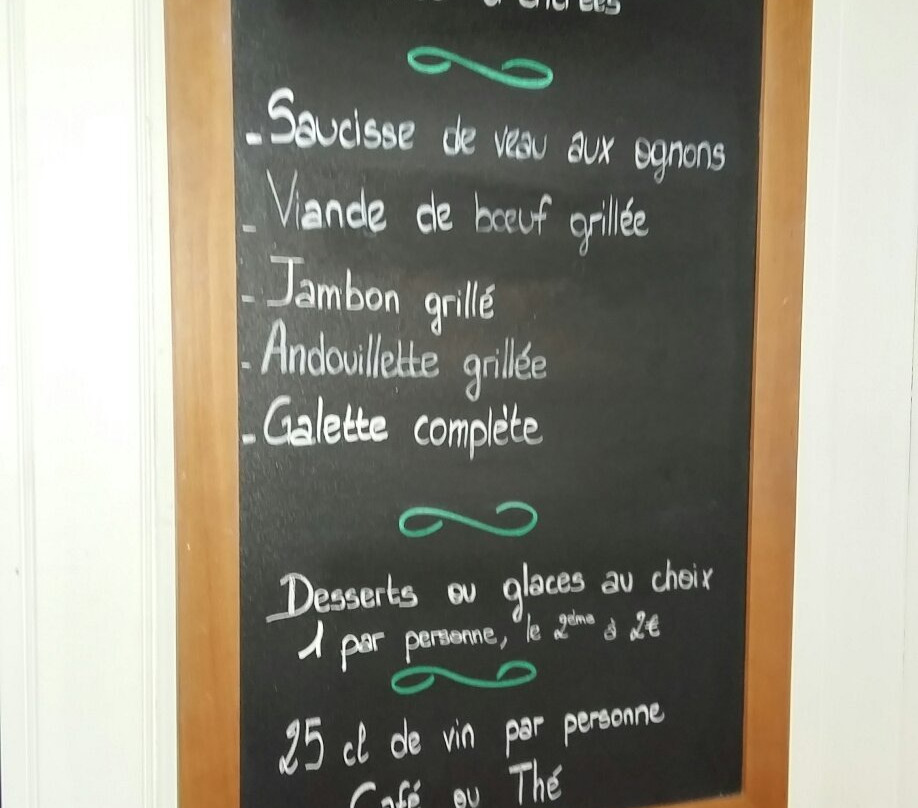 d'entrées
- Saucisse de veau aux ognons
- Viande de bœuf grillée
- Jambon grillé
- Andouillette grillée
- Galette complète
Desserts ou glaces au choix
1 par personne, le 2ème à 2€
25 cl de vin par personne
Café ou Thé